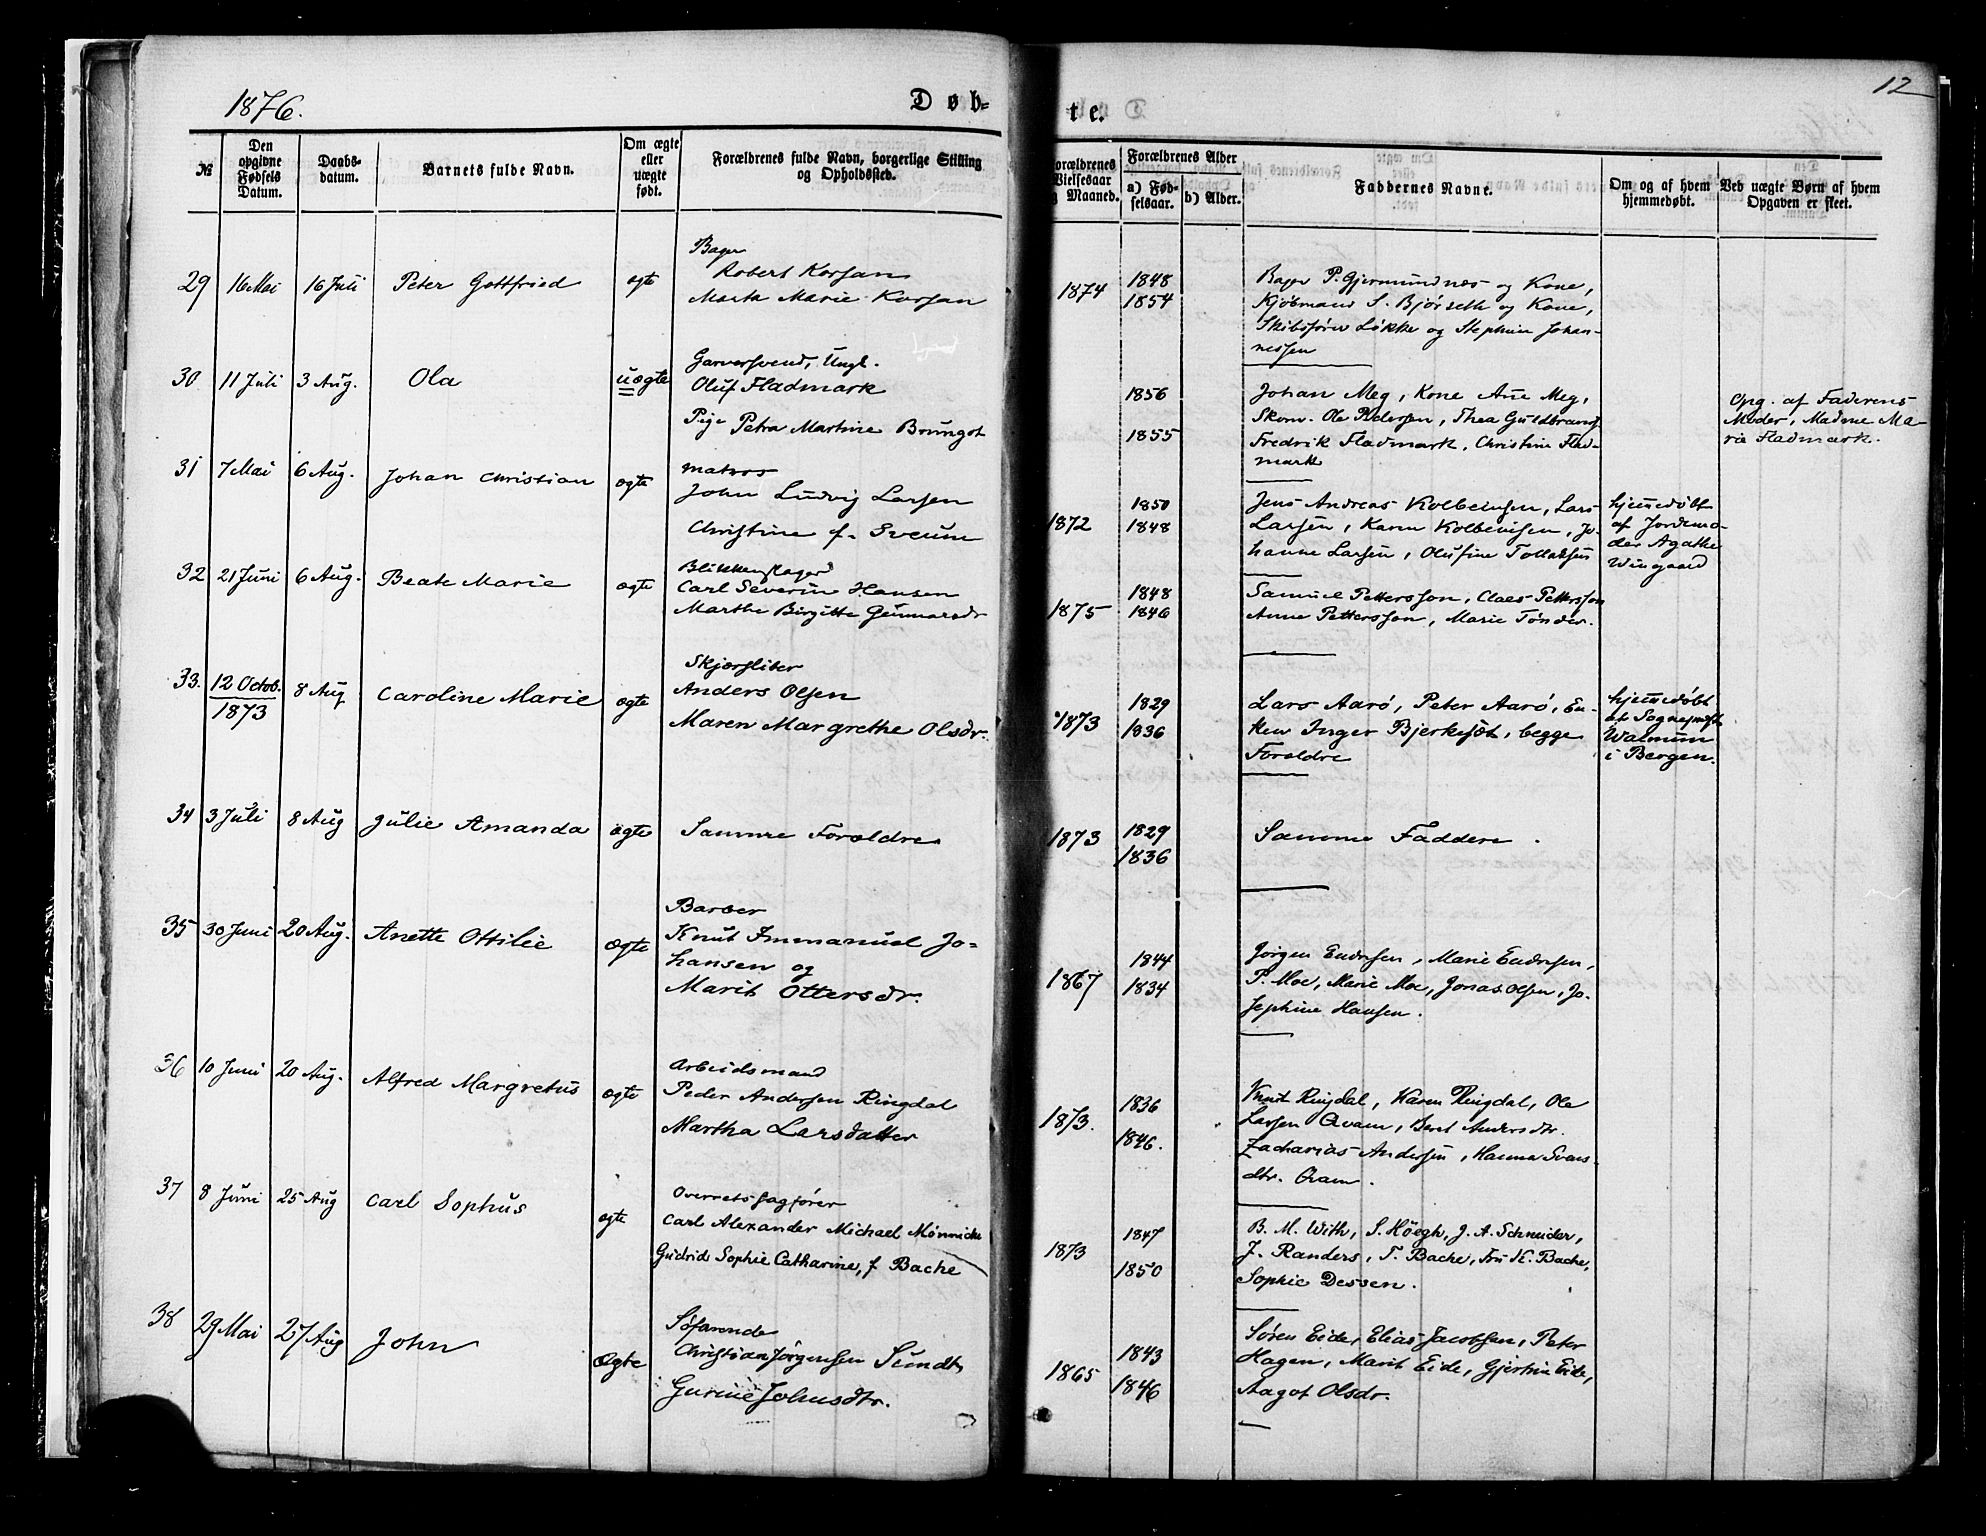 1876.
Døb-
te.
12
№
Den opgivne Fødsels Datum.
Daabs-datum.
Barnets fulde Navn.
Om ægte eller uægte født.
Forældrenes fulde Navn, borgerlige Stilling og Opholdssted.
Forældrenes Vielsesaar og Maaned.
Forældrenes Alder
a) Fød-selsaar.
b) Alder.
Faddernes Navne.
Om og af hvem hjemmedøbt.
Ved uægte Børn af hvem Opgaven er skeet.
29 16 Mai 16 Juli Peter Gottfried ægte
Bager
Robert Korsan
Marta Marie Korsan
1874
1848
1854
Bager P. Gjermundnæs og Kone,
Kjøbmand S. Bjørseth og Kone,
Skibsfører Løkke og Stephine Johan-
nessen
30. 11 Juli 3 Aug. Ola uægte
Garversvend, Ungk.
Oluf Fladmark
Pige Petra Martine Brungot
1856
1855
Johan Meg, Kone Ane Meg,
Skom. Ole Pedersen, Thea Guldbrands
Fredrik Fladmark, Christine Flad-
mark
Opg. af Faderens
Moder, Madme Ma-
rie Fladmark.
31 7 Mai 6 Aug. Johan Christian ægte
Matros
John Ludvig Larsen
Christine f. Sveum
1872
1850
1848
Jens Andreas Kolbeinsen, Lars
Larsen, Karen Kolbeinsen, Jo-
hanne Larsen, Olufine Tollaksen
hjemmedøbt
af Jordemo-
der Agathe
Wingaard
32 21 Juni 6 Aug. Beate Marie ægte
Blikkenslager
Carl Severin Hansen
Marthe Birgitte Gunnarsdr
1875
1848
1846
Samuel Pettersson, Claes Pettersson
Anne Pettersson, Marie Tønder.
33. 12 Octob. 1873 8 Aug Caroline Marie ægte
Skjærsliber
Anders Olsen
Maren Margrethe Olsdr.
1873
1829
1836
Lars Aarø, Peter Aarø, En-
ken Inger Bjerkeset, begge
Forældre
hjemmedøbt
af Sognepræst
Walnum
i Bergen.
34 3 Juli 8 Aug Julie Amanda ægte
Samme Forældre
1873
1829
1836
Samme Faddere.
35 30 Juni 20 Aug. Anette Ottilie ægte
Barber
Knut Immanuel Jo-
hansen og
Marit Ottersdr.
1867
1844
1834
Jørgen Endresen, Marie Endresen,
P. Moe, Marie Moe, Jonas Olsen, Jo-
sephine Hansen.
36 10 Juni 20 Aug. Alfred Margretus ægte
Arbeidsmand
Peder Andersen Ringdal
Martha Larsdatter
1873.
1836
1846.
Knut Ringdal, Karen Ringdal, Ole
Larsen Qvam, Beret Andersdtr.
Zacharias Andersen, Hanna Svens-
dtr. Qvam.
37 8 Juni 25 Aug Carl Sophus ægte
Overretssagfører
Carl Alexander Michael Mønniche
Gudrid Sophie Catharine, f. Bache
1873
1847
1850
B. M. With, S. Høegh, J. A. Schneider,
J. Randers, T. Bache, Fru K. Bache,
Sophie Dessen.
38 29 Mai 27 Aug John ægte
Søfarende
Christian Jørgensen Sundt,
Gurine Johnsdtr.
1865
1843
1846
Søren Eide, Elias Jacobsen, Peter
Hagen, Marit Eide, Gjertrin Eide,
Aagot Olsdr.